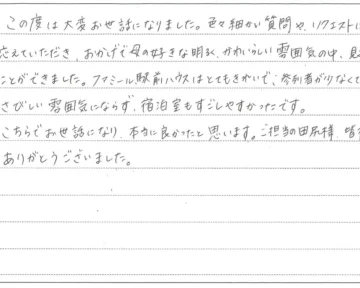 この度は大変お世話になりました。色々細かい質問や、リクエストに
応えていただき、おかげで母の好きな明るく、かわいらしい雰囲気の中、見
ことができました。ファミール駅前ハウスはとてもきれいで、参列者が少なくて
さびしい雰囲気にならず、宿泊室もすごしやすかったです。
こちらでお世話になり、本当に良かったと思います。ご担当の田尻様、皆
ありがとうございました。